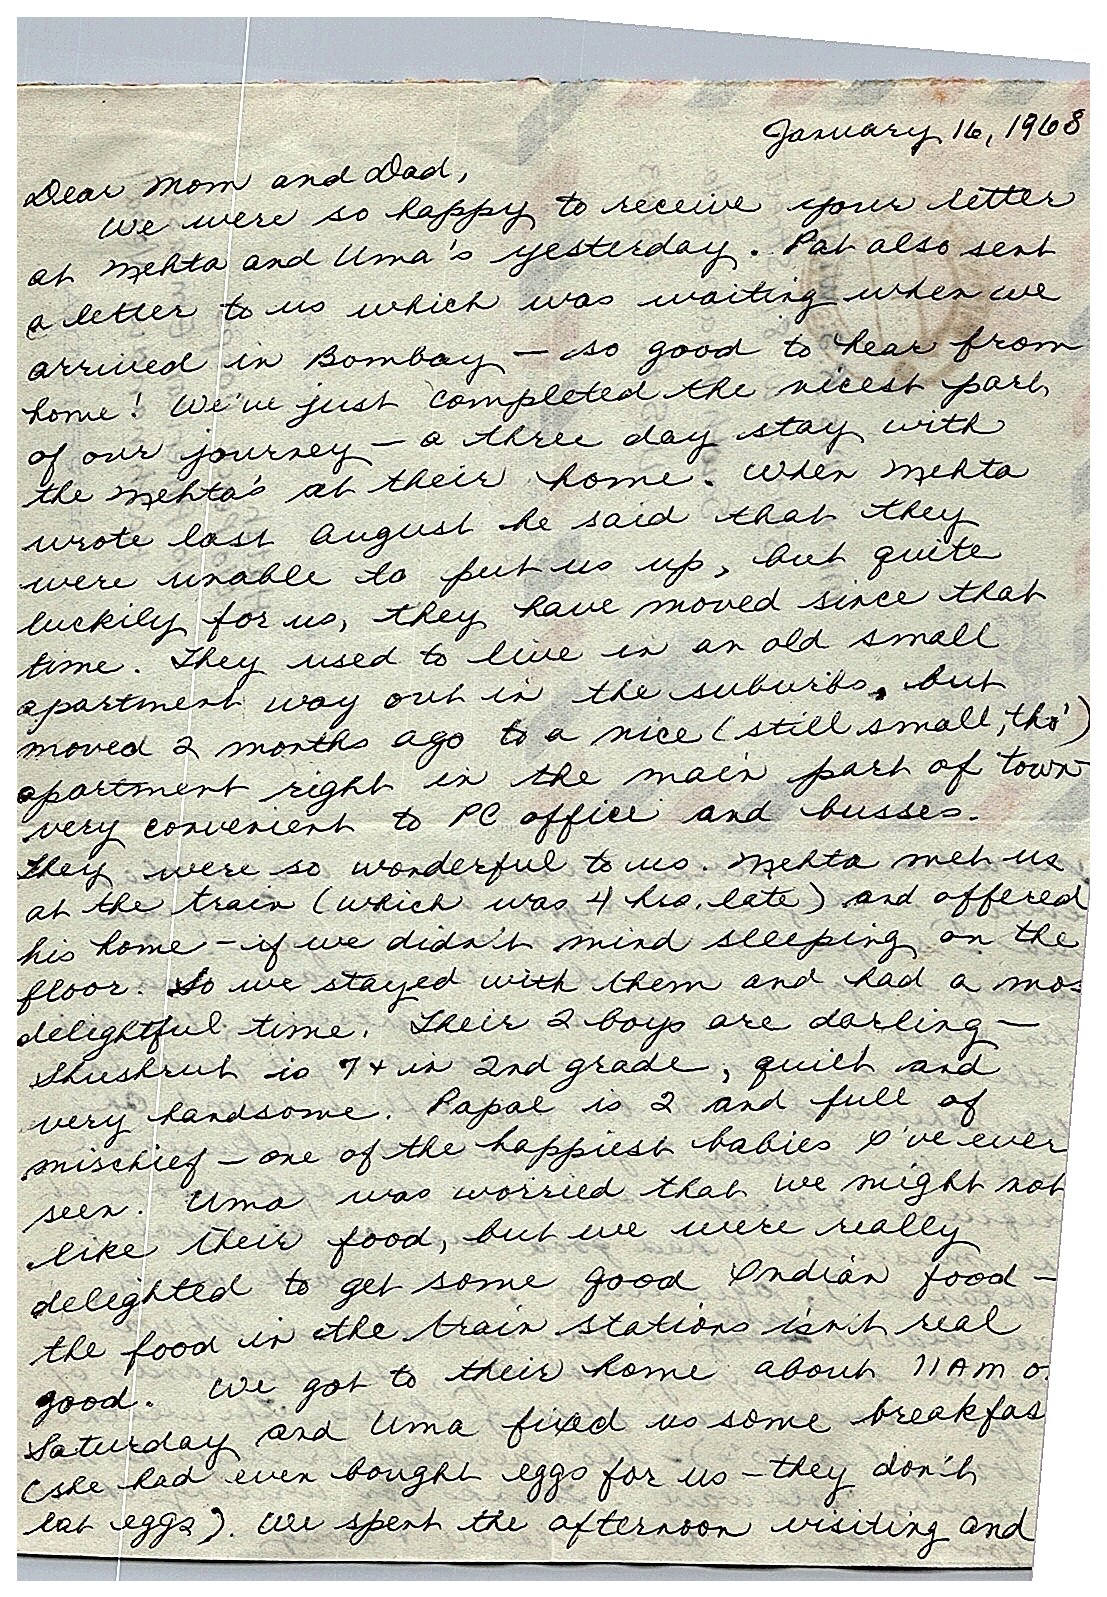 January 16, 1968
Dear Mom and Dad,
We were so happy to receive your letter
at Mehta and Uma's yesterday. Pat also sent
a letter to us which was waiting when we
arrived in Bombay — so good to hear from
home! We've just completed the nicest part
of our journey — a three day stay with
the Mehta's at their home. When Mehta
wrote last August he said that they
were unable to put us up, but quite
luckily for us, they have moved since that
time. They used to live in an old small
apartment way out in the suburbs, but
moved 2 months ago to a nice (still small, tho')
apartment right in the main part of town
very convenient to PC office and busses.
They were so wonderful to us. Mehta met us
at the train (which was 4 hrs. late) and offered
his home - if we didn't mind sleeping on the
floor. So we stayed with them and had a mos
delightful time. Their 2 boys are darling —
Shushrut is 7 + in 2nd grade, quiet and
very handsome. Papal is 2 and full of
mischief - one of the happiest babies I've ever
seen. Uma was worried that we might not
like their food, but we were really
delighted to get some good Indian food -
the food in the train stations isn't real
good. We got to their home about 11 AM o
Saturday and Uma fixed us some breakfas
(she had even bought eggs for us - they don't
eat eggs). We spent the afternoon visiting and